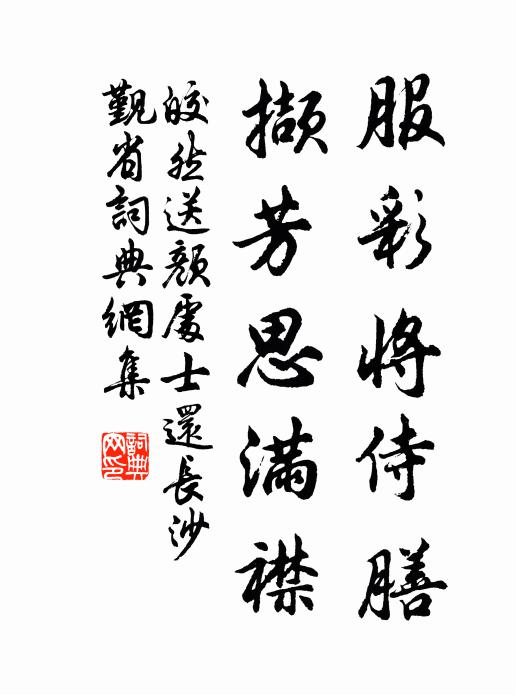 服彩將侍膳
擷芳思滿襟
皎然送顏處士還長沙
覲省詞典網集
詞典網印